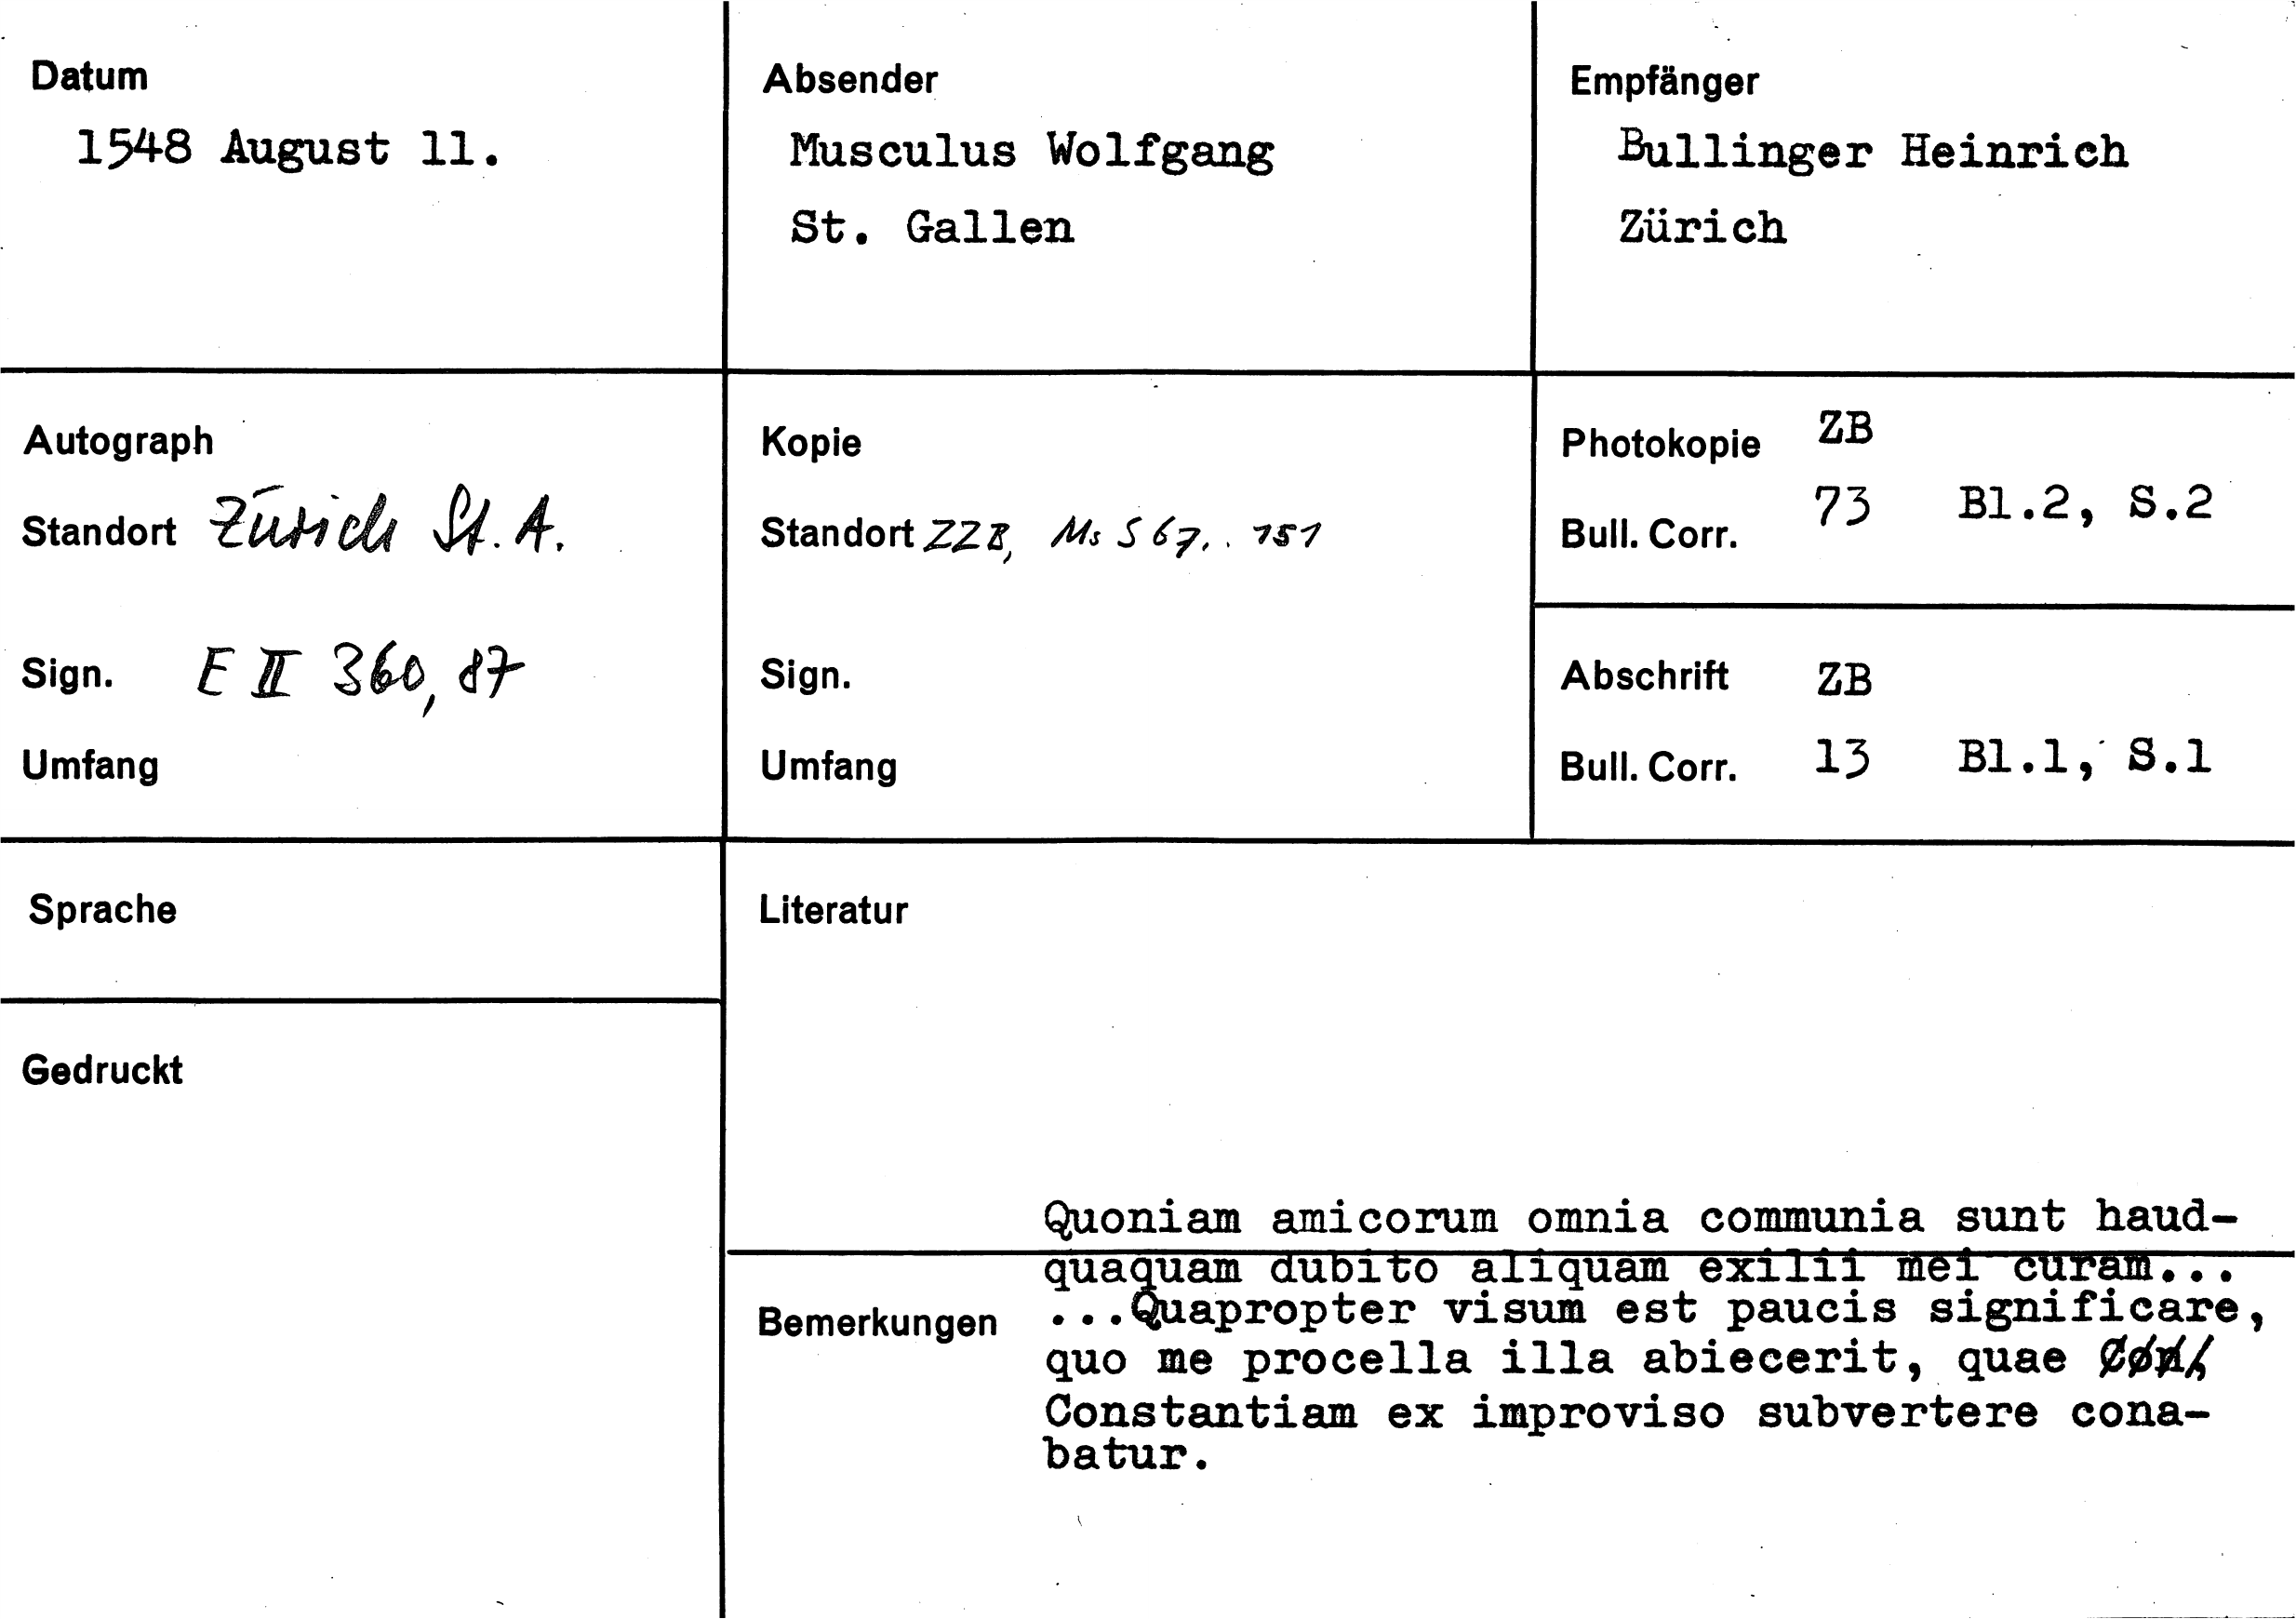 Datum
1548 August 11.
Absender
Musculus Wolfgang
St. Gallen
Empfänger
Bullinger Heinrich
Zürich
Autograph
Standort Zürich St. A.
Sign. E II 360, 87
Umfang
Kopie
Standort ZZB, Ms S 67, 151
Sign.
Umfang
Photokopie ZB
Bull. Corr. 73 Bl.2, S.2
Abschrift ZB
Bull. Corr. 13 Bl.1, S.1
Sprache
Gedruckt
Literatur
Quoniam amicorum omnia communia sunt haud-
quaquam dubito aliquam exilii mei curam...
Bemerkungen ...Quapropter visum est paucis significare,
quo me procella illa abiecerit, quae
Constantiam ex improviso subvertere cona-
batur.